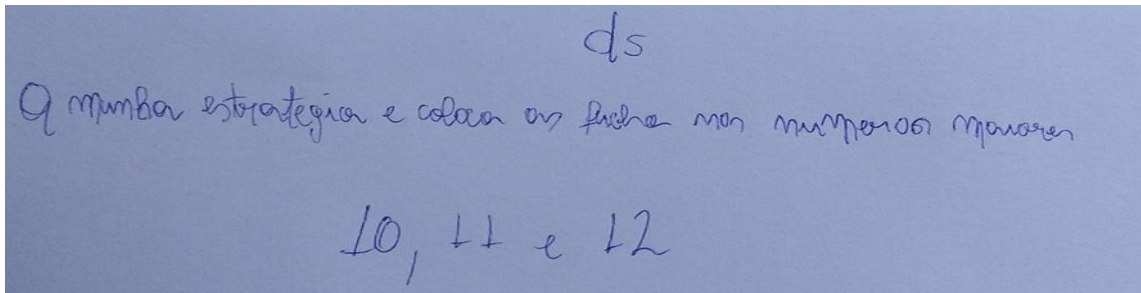 ds
A minha estrategia e coloca as ficha nos numeros maiores
10, 11 e 12